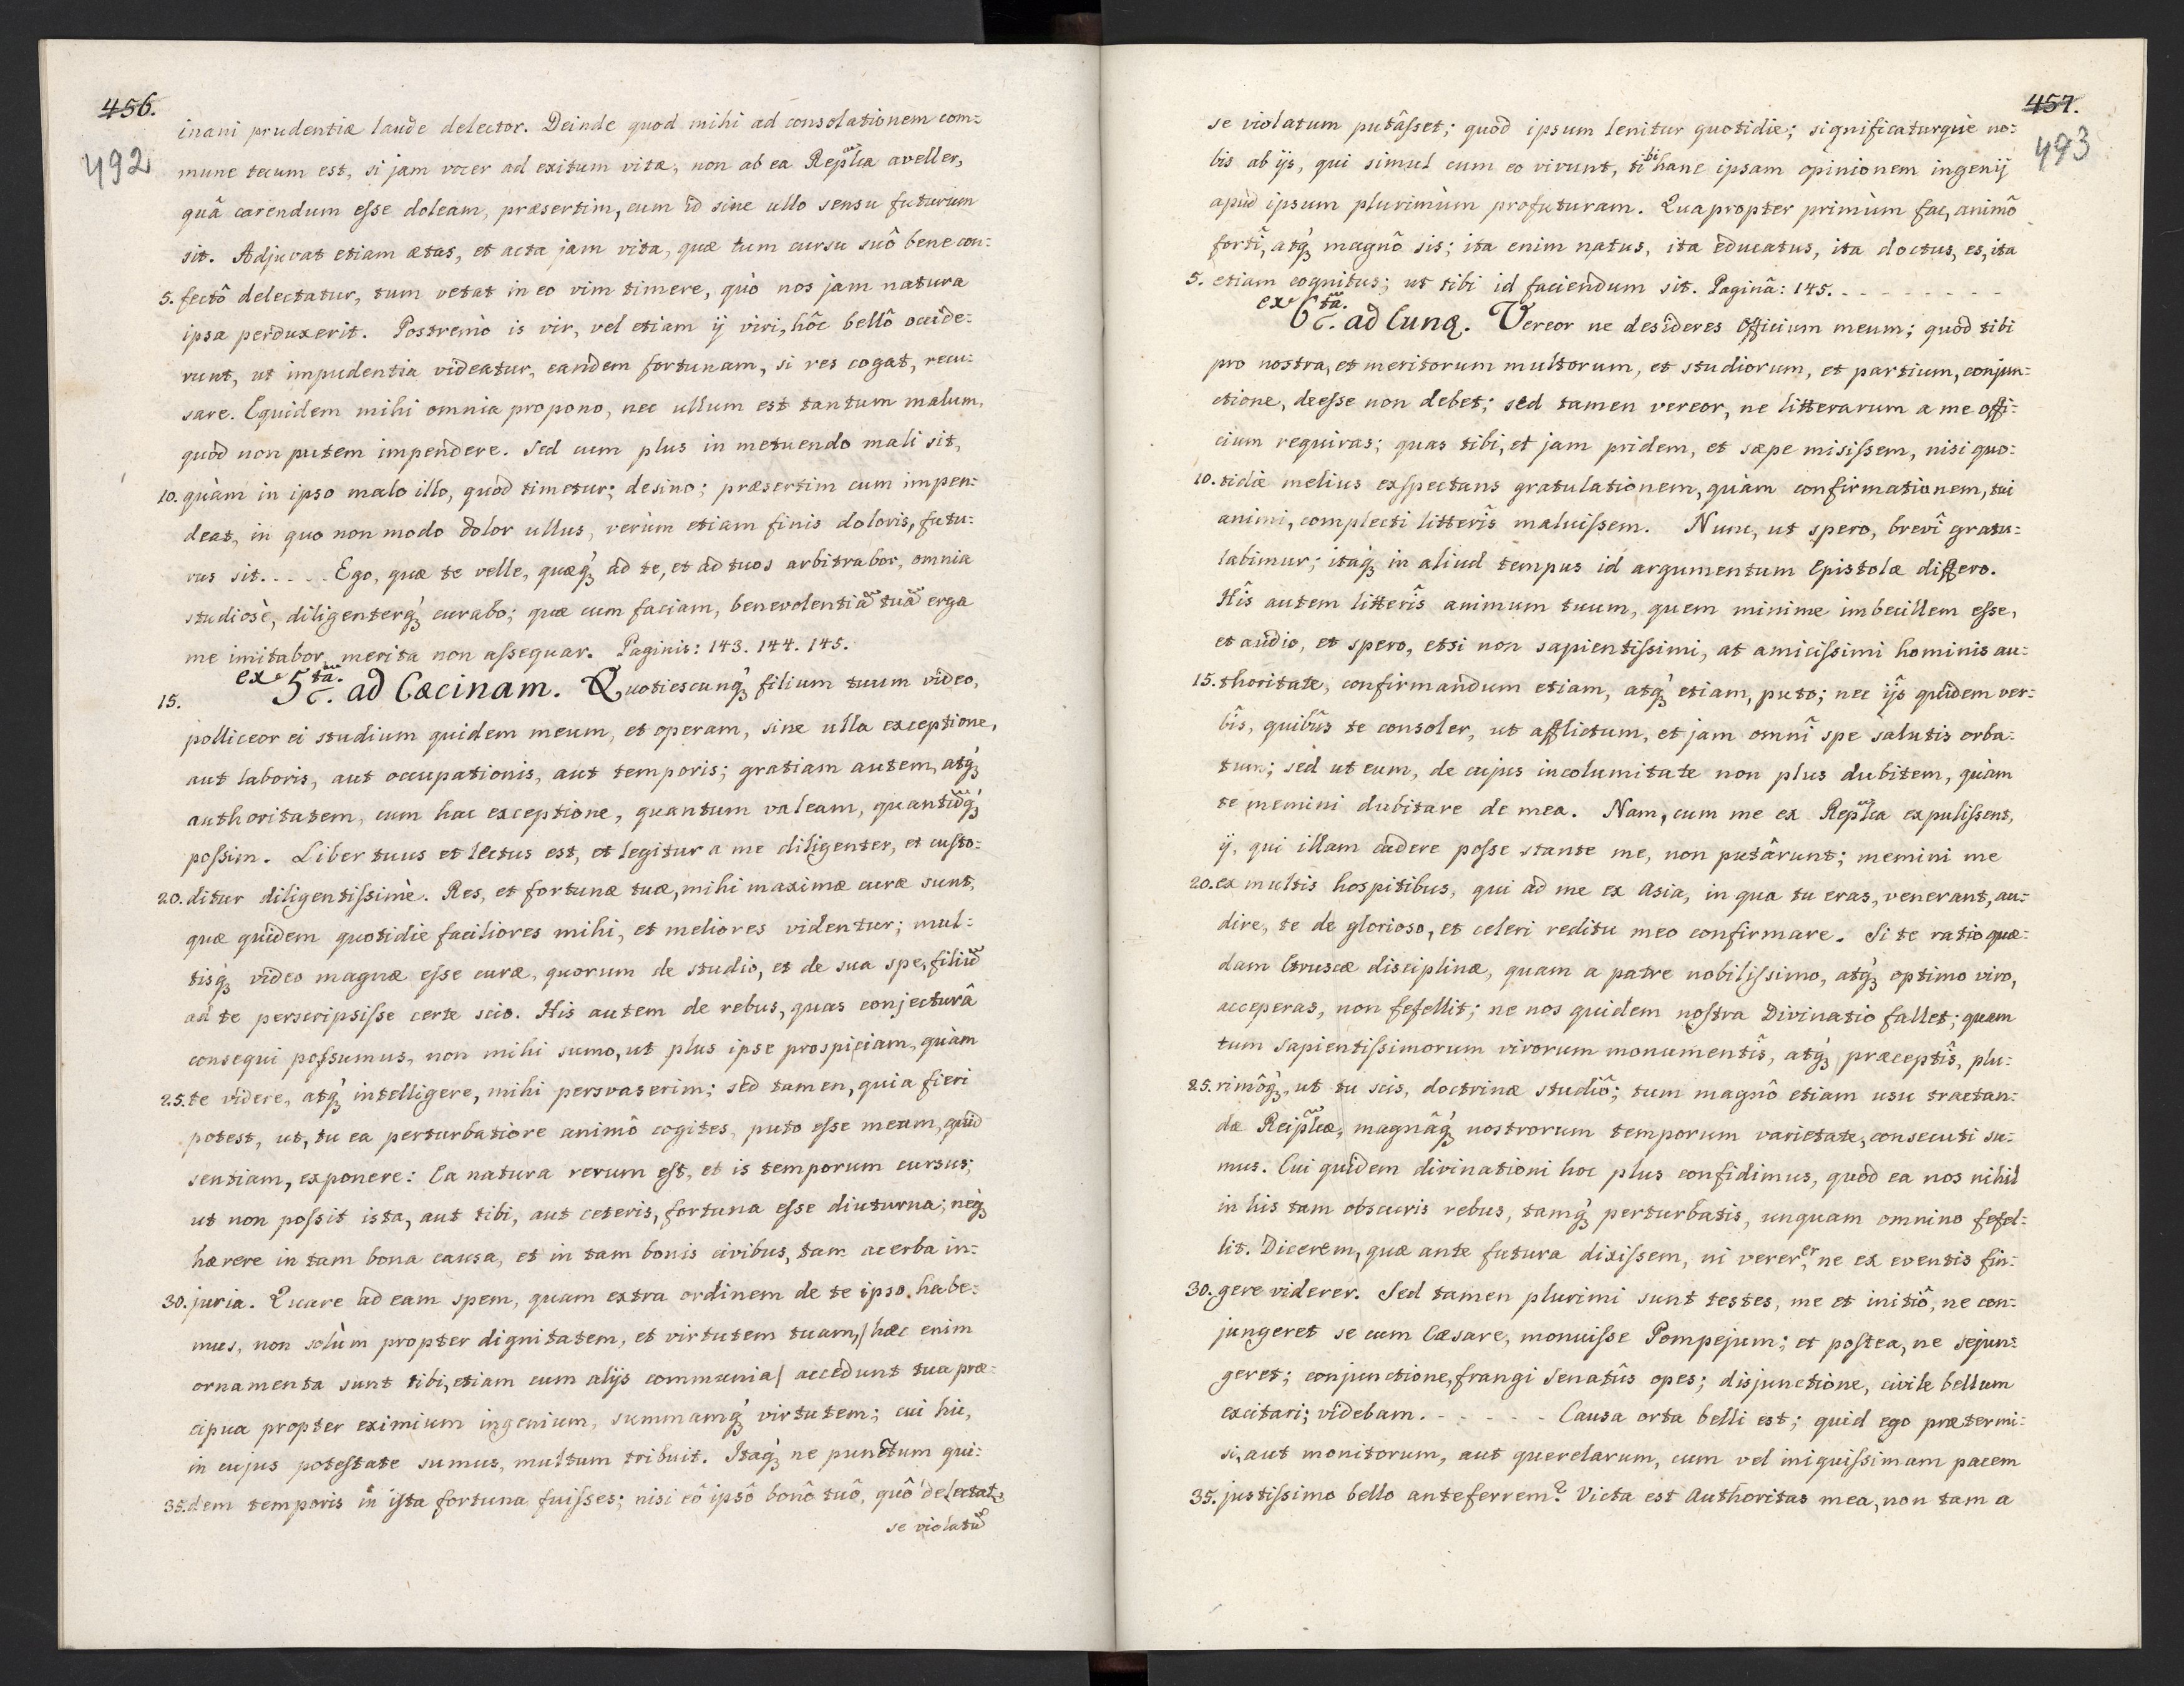 456.
492
inani prudentiæ laude delector. Deinde quod mihi ad consolationem com=
mune tecum est, si jam vocer ad exitum vitæ, non ab ea Replca aveller,
quâ carendum esse doleam, præsertim, cum id sine ullo sensu futurum
sit. Adjuvat etiam ætas, et acta jam vita, quæ tum cursu suô bene con=
5. fectô delectatur, tum vetat in eo vim timere, quò nos jam natura
ipsa perduxerit. Postremò is vir, vel etiam ij viri, hôc bellô occide=
runt, ut impudentia videatur, eandem fortunam, si res cogat, recu=
sare. Equidem mihi omnia propono, nec ullum est tantum malum,
quòd non putem impendere. Sed cum plus in metuendo mali sit,
10. quàm in ipso malo illo, quòd timetur; desino; præsertim cum impen=
deat, in quo non modo dolor ullus, verùm etiam finis doloris, futu=
rus sit. . . . . Ego, quæ te velle, quæq́ʒ ad te, et ad tuos arbitrabor, omnia
studiosè, diligenterq́ʒ curabo; quæ cum faciam, benevolentiã tuã erga
me imitabor, merita non assequar. Paginis: 143. 144. 145.
15. ex 5ta. c. ad Cæcinam. Quotiescunq́ʒ filium tuum video,
polliceor ei studium quidem meum, et operam, sine ulla exceptione,
aut laboris, aut occupationis, aut temporis; gratiam autem, atq́ʒ
authoritatem, cum hac exceptione, quantum valeam, quantũq́ʒ
possim. Liber tuus et lectus est, et legitur a me diligenter, et custo=
20. ditur diligentissimè. Res, et fortunæ tuæ, mihi maximæ curæ sunt,
quæ quidem quotidie faciliores mihi, et meliores videntur; mul=
tisq́ʒ video magnæ esse curæ, quorum de studio, et de sua spe, filiũ
ad te perscripsisse certe scio. His autem de rebus, quas conjecturâ
consequi possumus, non mihi sumo, ut plus ipse prospiciam, quàm
25. te videre, atq́ʒ intelligere, mihi persvaserim; sed tamen, quia fieri
potest, ut, tu ea perturbatiore animô cogites, puto esse meum, quid
sentiam, exponere: Ea natura rerum est, et is temporum cursus;
ut non possit ista, aut tibi, aut ceteris, fortuna esse diuturna; neq́ʒ
hærere in tam bona causa, et in tam bonis civibus, tam acerba in=
30. juria. Quare ad eam spem, quam extra ordinem de te ipso habe=
mus, non solùm propter dignitatem, et virtutem tuam,/ hæc enim
ornamenta sunt tibi, etiam cum alijs communia/ accedunt tua præ=
cipua propter eximium ingenium, summamq́ʒ virtutem; cui hic,
in cujus potestate sumus, multum tribuit. Itaq́ʒ ne punctum qui=
35. dem temporis in ista fortuna fuisses; nisi eô ipsô bonô tuô, quô delectatʒ
se violatũ
457.
493
se violatum putâsset; quòd ipsum lenitur quotidie; significaturque no=
bis ab ijs, qui simul cum eo vivunt, tibi hanc ipsam opinionem ingenij
apud ipsum plurimùm profuturam. Quapropter primùm fac, animô
fortî, atq́ʒ magnô sis; ita enim natus, ita educatus, ita doctus, es, ita
5. etiam cognitus; ut tibi id faciendum sit. Paginâ: 145. - - - - - - - -
ex 6tã. c. ad Eunq. Vereor ne desideres officium meum; quòd tibi
pro nostra, et meritorum multorum, et studiorum, et partium, conjun=
ctione, deesse non debet; sed tamen vereor, ne litterarum a me offi=
cium requiras; quas tibi, et jam pridem, et sæpe misissem, nisi quo=
10. tidie melius exspectans gratulationem, quàm confirmationem, tui
animi, complecti litterîs maluissem. Nunc, ut spero, brevî gratu=
labimur; itaq́ʒ in aliud tempus id argumentum Epistolæ differo.
Hîs autem litterîs animum tuum, quem minime imbecillem esse,
et audio, et spero, etsi non sapientissimi, at amicissimi hominis au=
15. thoritate, confirmandum etiam, atq́ʒ etiam, puto; nec ijs quidem ver=
bîs, quibûs te consoler, ut afflictum, et jam omnî spe salutis orba=
tum; sed ut eum, de cujus incolumitate non plus dubitem, quàm
te memini dubitare de mea. Nam, cum me ex Replca expulissent,
ij, qui illam cadere posse stante me, non putârunt; memini me
20. ex multis hospitibus, qui ad me ex Asia, in qua tu eras, venerant, au=
dire, te de glorioso, et celeri reditu meo confirmare. Si te ratio quæ=
dam Etruscæ disciplinæ, quam a patre nobilissimo, atq́ʒ optimo viro,
acceperas, non fefellit; ne nos quidem nostra Divinatio fallet; quam
tum sapientissimorum virorum monumentîs, atq́ʒ præceptîs, plu=
25. rimôq́ʒ, ut tu scis, doctrinæ studiô; tum magnô etiam usu tractan=
dæ Reiplcæ, magnâq́ʒ nostrorum temporum varietate, consecuti su=
mus. Cui quidem divinationi hoc plus confidimus, quòd ea nos nihil
in his tam obscuris rebus, tamq́ʒ perturbatis, unquam omnino fefel=
lit. Dicerem, quæ ante futura dixissem, ni vererer, ne ex eventis fin=
30. gere viderer. Sed tamen plurimi sunt testes, me et initiô, ne con=
jungeret se cum Cæsare, monuisse Pompejum; et postea, ne sejun=
geret; conjunctione, frangi Senatûs opes; disjunctione, civile bellum
excitari; videbam. - - - - - Causa orta belli est; quid ego prætermi=
si, aut monitorum, aut querelarum, cum vel iniquissimam pacem
35. justissimo bello anteferrem? Victa est Authoritas mea, non tam a